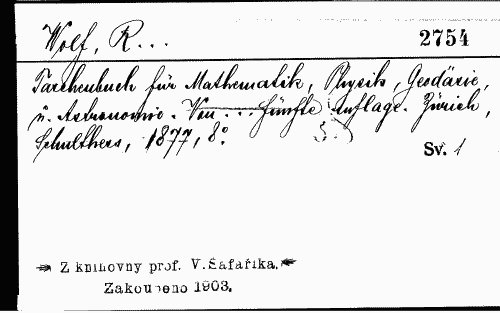 Wolf, R...
2754
Taschenbuch für Mathematik, Physik, Geodäsie,
u. Astronomie. Von ... fünfte Auflage. Zürich,
Schulthess, 1877, 8°.
Sv. 1
Z knihovny prof. V. Šafaříka.
Zakoupeno 1903.